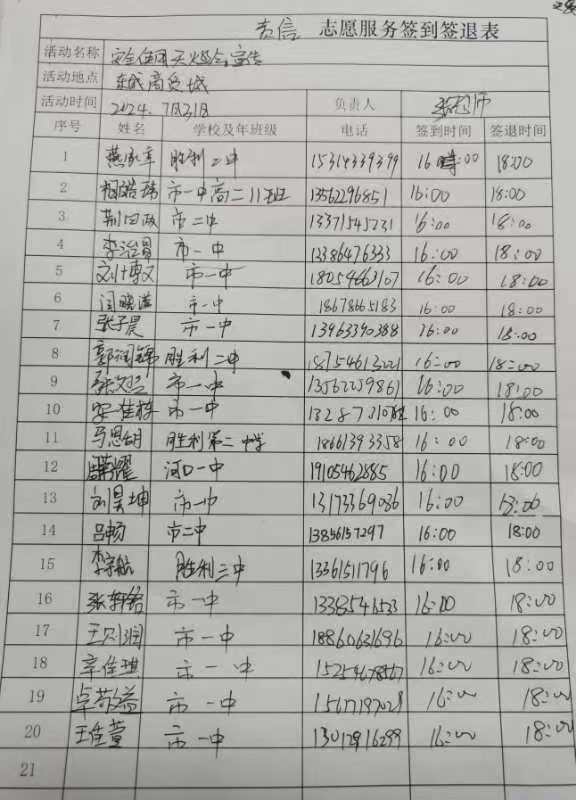 责信 志愿服务签到签退表
活动名称 安全使用灭火器宣传
活动地点 东城商贸城
活动时间 2024.7月31日 负责人
序号 姓名 学校及年班级 电话 签到时间 签退时间
1 胜利二中 15314339399 16时:00 18:00
2 市一中高二11班 13562296851 16:00 18:00
3 市二中 13371545231 16:00 18:00
4 李治胃 市一中 13386476333 16:00 18:00
5 刘博文 市一中 18054663107 16:00 18:00
6 闫晓滢 市一中 18678665183 16:00 18:00
7 张子晨 市一中 13963390388 16:00 18:00
8 郭润锦 胜利二中 18754613221 16:00 18:00
9 市一中 13562259861 16:00 18:00
10 市一中 16:00 18:00
11 马恩胡 胜利第二中学 18661393358 16:00 18:00
12 河口一中 19105462885 16:00 18:00
13 刘昊坤 市一中 13173369086 16:00 18:00
14 吕畅 市二中 13856157297 16:00 18:00
15 李宗航 胜利二中 1336151796 16:00 18:00
16 张轩铭 市一中 1338546533 16:00 18:00
17 王贝润 市一中 18860631696 16:00 18:00
18 辛佳琪 市一中 15254678567 16:00 18:00
19 市一中 15617197028 16:00 18:00
20 王佳萱 市一中 13012916299 16:00 18:00
21